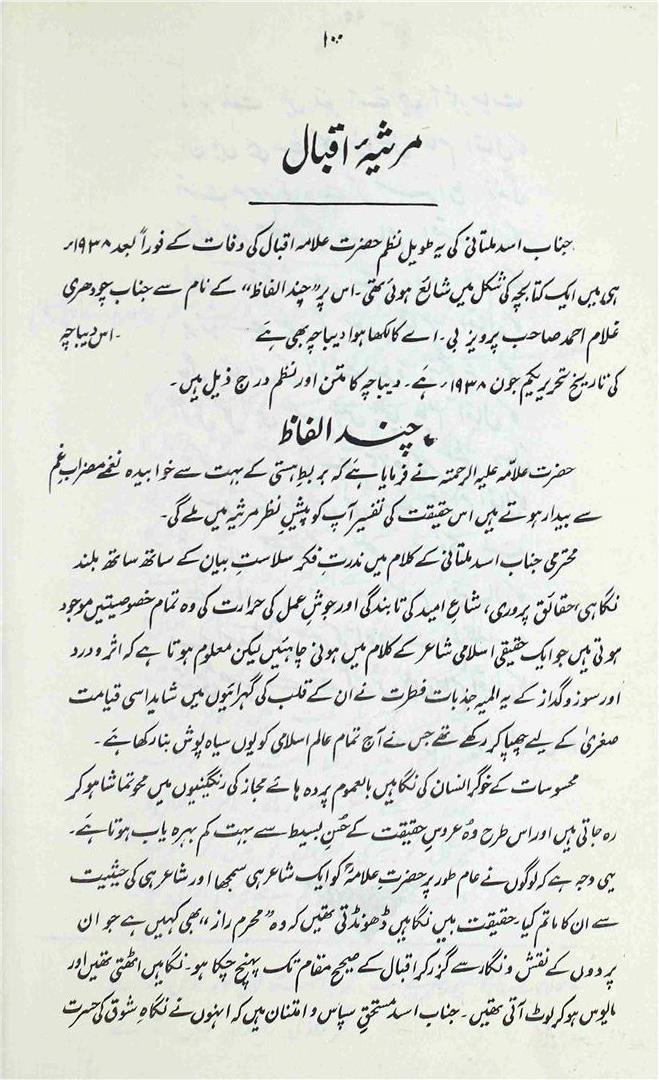 ۱۰۰
مرثیۂ اقبال
جناب اسد ملتانی کی یہ طویل نظم حضرت علامہ اقبال کی وفات کے فوراً بعد ۱۹۳۸ء
ہی میں ایک کتابچہ کی شکل میں شائع ہوئی تھی۔ اس پر "چند الفاظ" کے نام سے جناب چودھری
غلام احمد صاحب پرویز بی۔ اے کا لکھا ہوا دیباچہ بھی ہے ۔اس دیباچہ
کی تاریخ تحریر یکم جون ۱۹۳۸ء ہے۔ دیباچہ کا متن اور نظم درج ذیل ہیں۔
چند الفاظ
حضرت علامہ علیہ الرحمتہ نے فرمایا ہے کہ بربطِ ہستی کے بہت سے خوابیدہ نغمے مضرابِ غم
سے بیدار ہوتے ہیں اس حقیقت کی تفسیر آپ کو پیشِ نظر مرثیہ میں ملے گی۔
محترمی جناب اسد ملتانی کے کلام میں ندرتِ فکر سلاستِ بیان کے ساتھ ساتھ بلند
نگاہی، حقائق پروری، شاعِ امید کی تابندگی اور جوشِ عمل کی حرارت کی وہ تمام خصوصیتیں موجود
ہوتی ہیں جو ایک حقیقی اسلامی شاعر کے کلام میں ہونی چاہئیں لیکن معلوم ہوتا ہے کہ اثر و درد
اور سوز و گداز کے یہ المیہ جذبات فطرت نے ان کے قلب کی گہرائیوں میں شاید اسی قیامت
صغریٰ کے لیے چھپا کر رکھے تھے جس نے آج تمام عالم اسلامی کو یوں سیاہ پوش بنا رکھا ہے۔
محسوسات کے خوگر انسان کی نگاہیں بالعموم پردہ ہائے مجاز کی رنگینیوں میں محو تماشا ہو کر
رہ جاتی ہیں اور اس طرح وہ عروسِ حقیقت کے حُسنِ بسیط سے بہت کم بہرہ یاب ہوتا ہے۔
یہی وجہ ہے کہ لوگوں نے عام طور پر حضرتِ علامہؒ کو ایک شاعر ہی سمجھا اور شاعر ہی کی حیثیت
سے ان کا ماتم کیا۔ حقیقت بیں نگاہیں ڈھونڈتی تھیں کہ وہ "محرم راز" بھی کہیں ہے جو ان
پردوں کے نقش و نگار سے گزر کر اقبال کے صحیح مقام تک پہنچ چکا ہو۔ نگاہیں اٹھتی تھیں اور
مایوس ہو کر لوٹ آتی تھیں۔ جناب اسد مستحقِ سپاس و امتنان ہیں کہ انہوں نے نگاہِ شوق کی حسرت